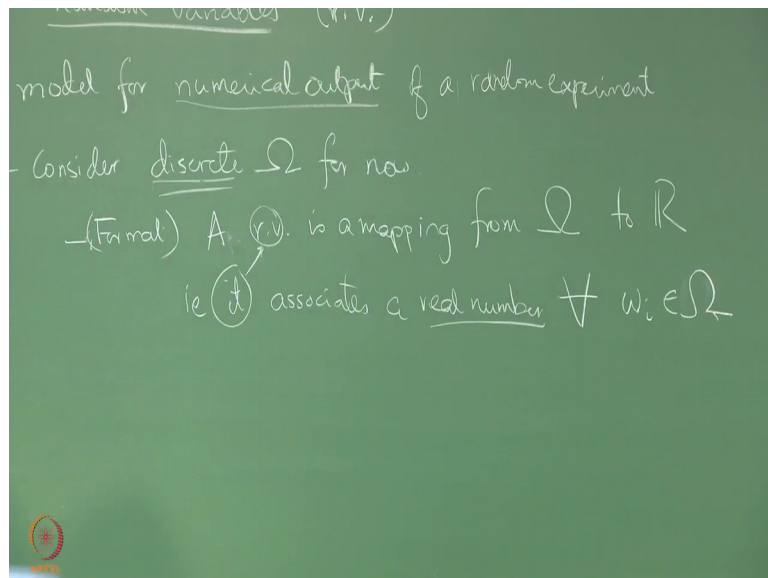 random variables (r.v.)
model for numerical output of a random experiment
- Consider discrete Ω for now.
- (Formal) A r.v. is a mapping from Ω to ℝ
ie it associates a real number ∀ ωᵢ ∈ Ω